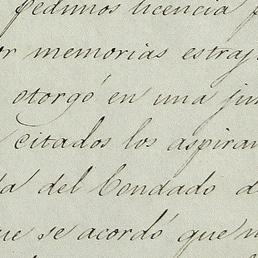 pedimos licencia p
or memorias estraj
otorgó en una jun
citados los aspiran
la del Condado d
ue se acordó que n